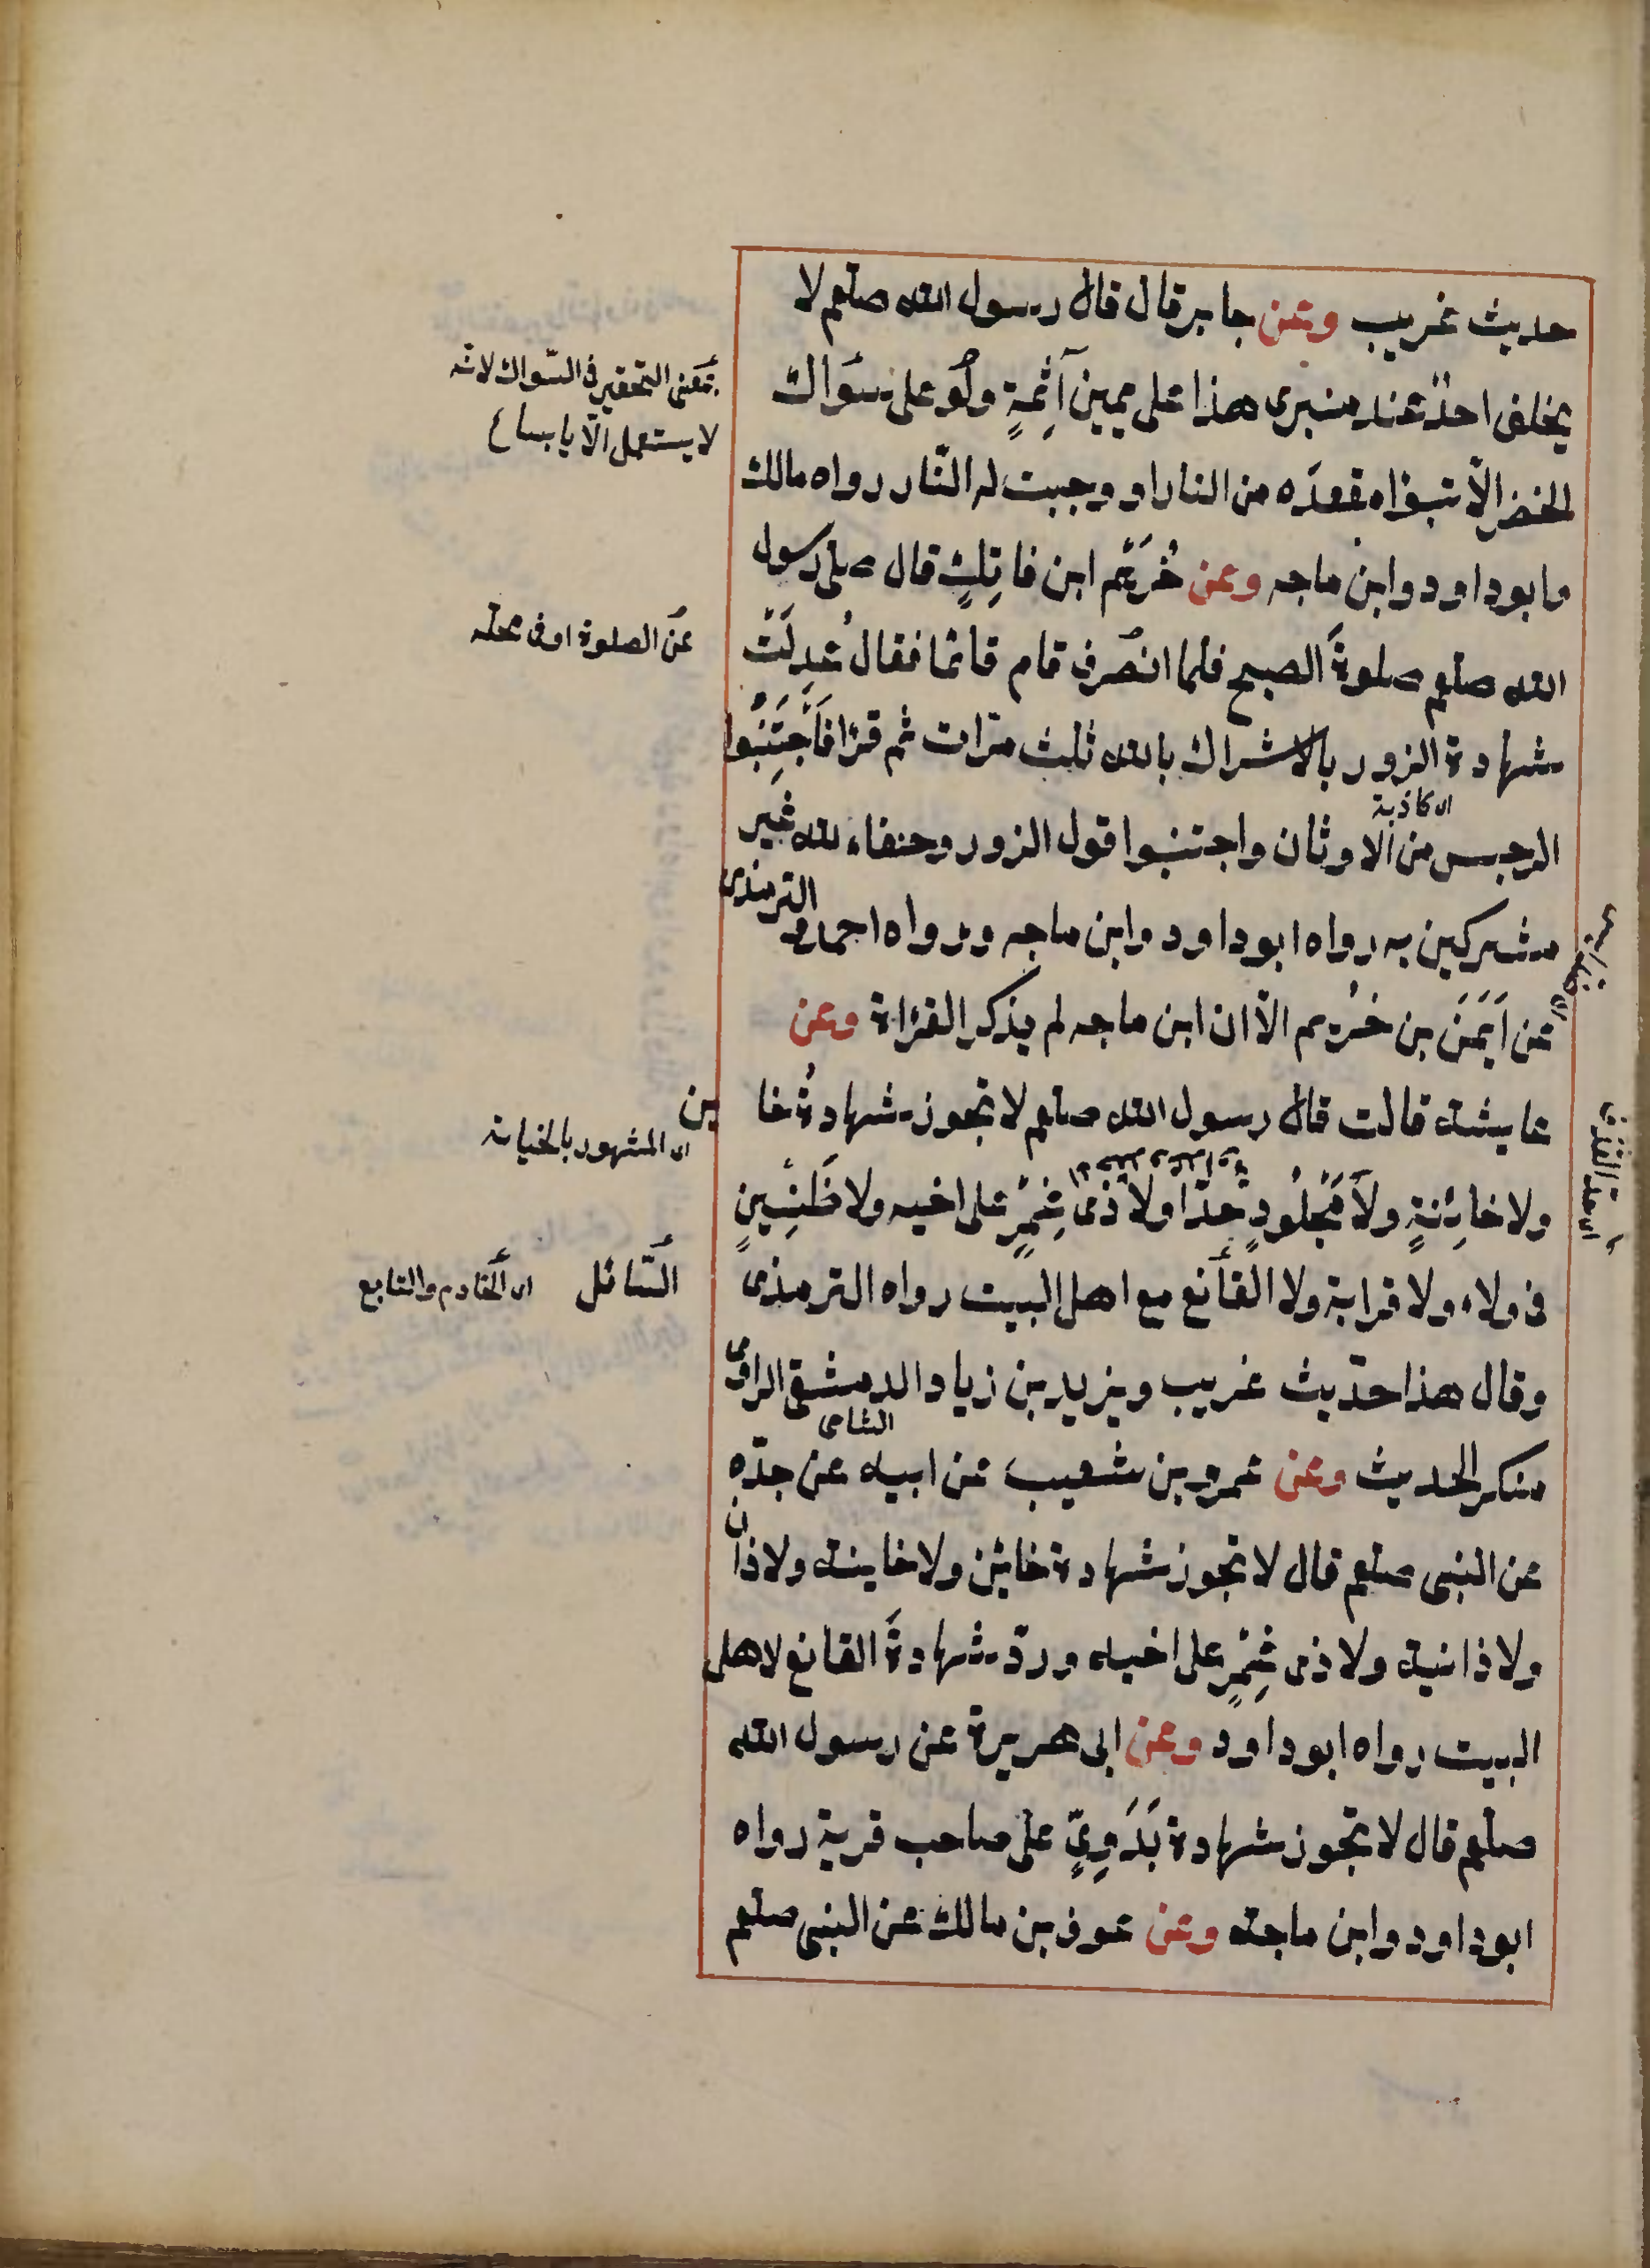 حديث غريب وعن جابر قال قال رسول الله صلعم لا
يحلف احدٌ عند منبرى هذا على يمين آثِمةٍ ولَو على سَواك
اخضر الّا تبوّأ مقعدَه من النار او وجبت له النّار رواه مالك
وابو داود وابن ماجه وعن خُرَيْم ابن فاتِكٍ قال صلى رسول
الله صلعم صلوةَ الصبح فلما انصرف قام قائما فقال عُدِلَتْ
شهادة الزور بالاشراك بالله ثلث مرّات ثم قرأ فَاجْتَنِبُوا
الرجس من الاوثان واجتنبوا قول الزور وحنفاء لله غير
مشركين به رواه ابو داود وابن ماجه ورواه احمد و الترمذى
عن اَيْمَنَ بن خُريم الّا ان ابن ماجه لم يذكر القرٔاة وعن
عايشة قالت قال رسول الله صلعم لا تجوز شهادةُ خاين
ولا خائِنةٍ ولا مَجْلُودٍ حدّا ولا ذى غِمْرٍ على اخيه ولا ظَنِيْنٍ
فى ولاء ولا قرابة ولا القانع مع اهل البيت رواه الترمذى
وقال هذا حديث غريب ويزيد بن زياد الدمشقى الراوى
منكر الحديث وعن عمرو بن شعيب عن ابيه عن جدّه
عن النبى صلعم قال لا تجوز شهادة خائن ولا خاينة ولا ذان
ولا ذانية ولا ذى غِمْرٍ على اخيه وردّ شهادةَ القانع لاهل
البيت رواه ابو داود وعن ابى هريرة عن رسول الله
صلعم قال لا تجوز شهادة بَدَوِىٍّ على صاحب قرية رواه
ابو داود وابن ماجة وعن عوف بن مالك عن النبى صلعم
بمعنى التحقير فى السّواك لانه
لا يستعمل الّا يابسا ع
عن الصلوة او فى محله
اى كاذبة
اى المشهور بالخيانة
السّائل
اى الخادم والتابع
الشامى